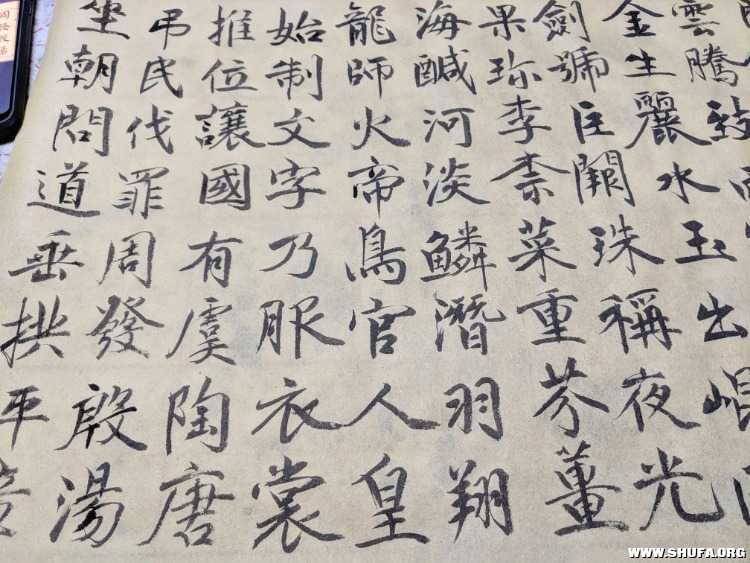 雲騰致
金生麗水玉出崐
劍號巨闕珠稱夜光
果珍李柰菜重芥薑
海鹹河淡鱗潛羽翔
龍師火帝鳥官人皇
始制文字乃服衣裳
推位讓國有虞陶唐
吊民伐罪周發殷湯
坐朝問道垂拱平章
WWW.SHUFA.ORG